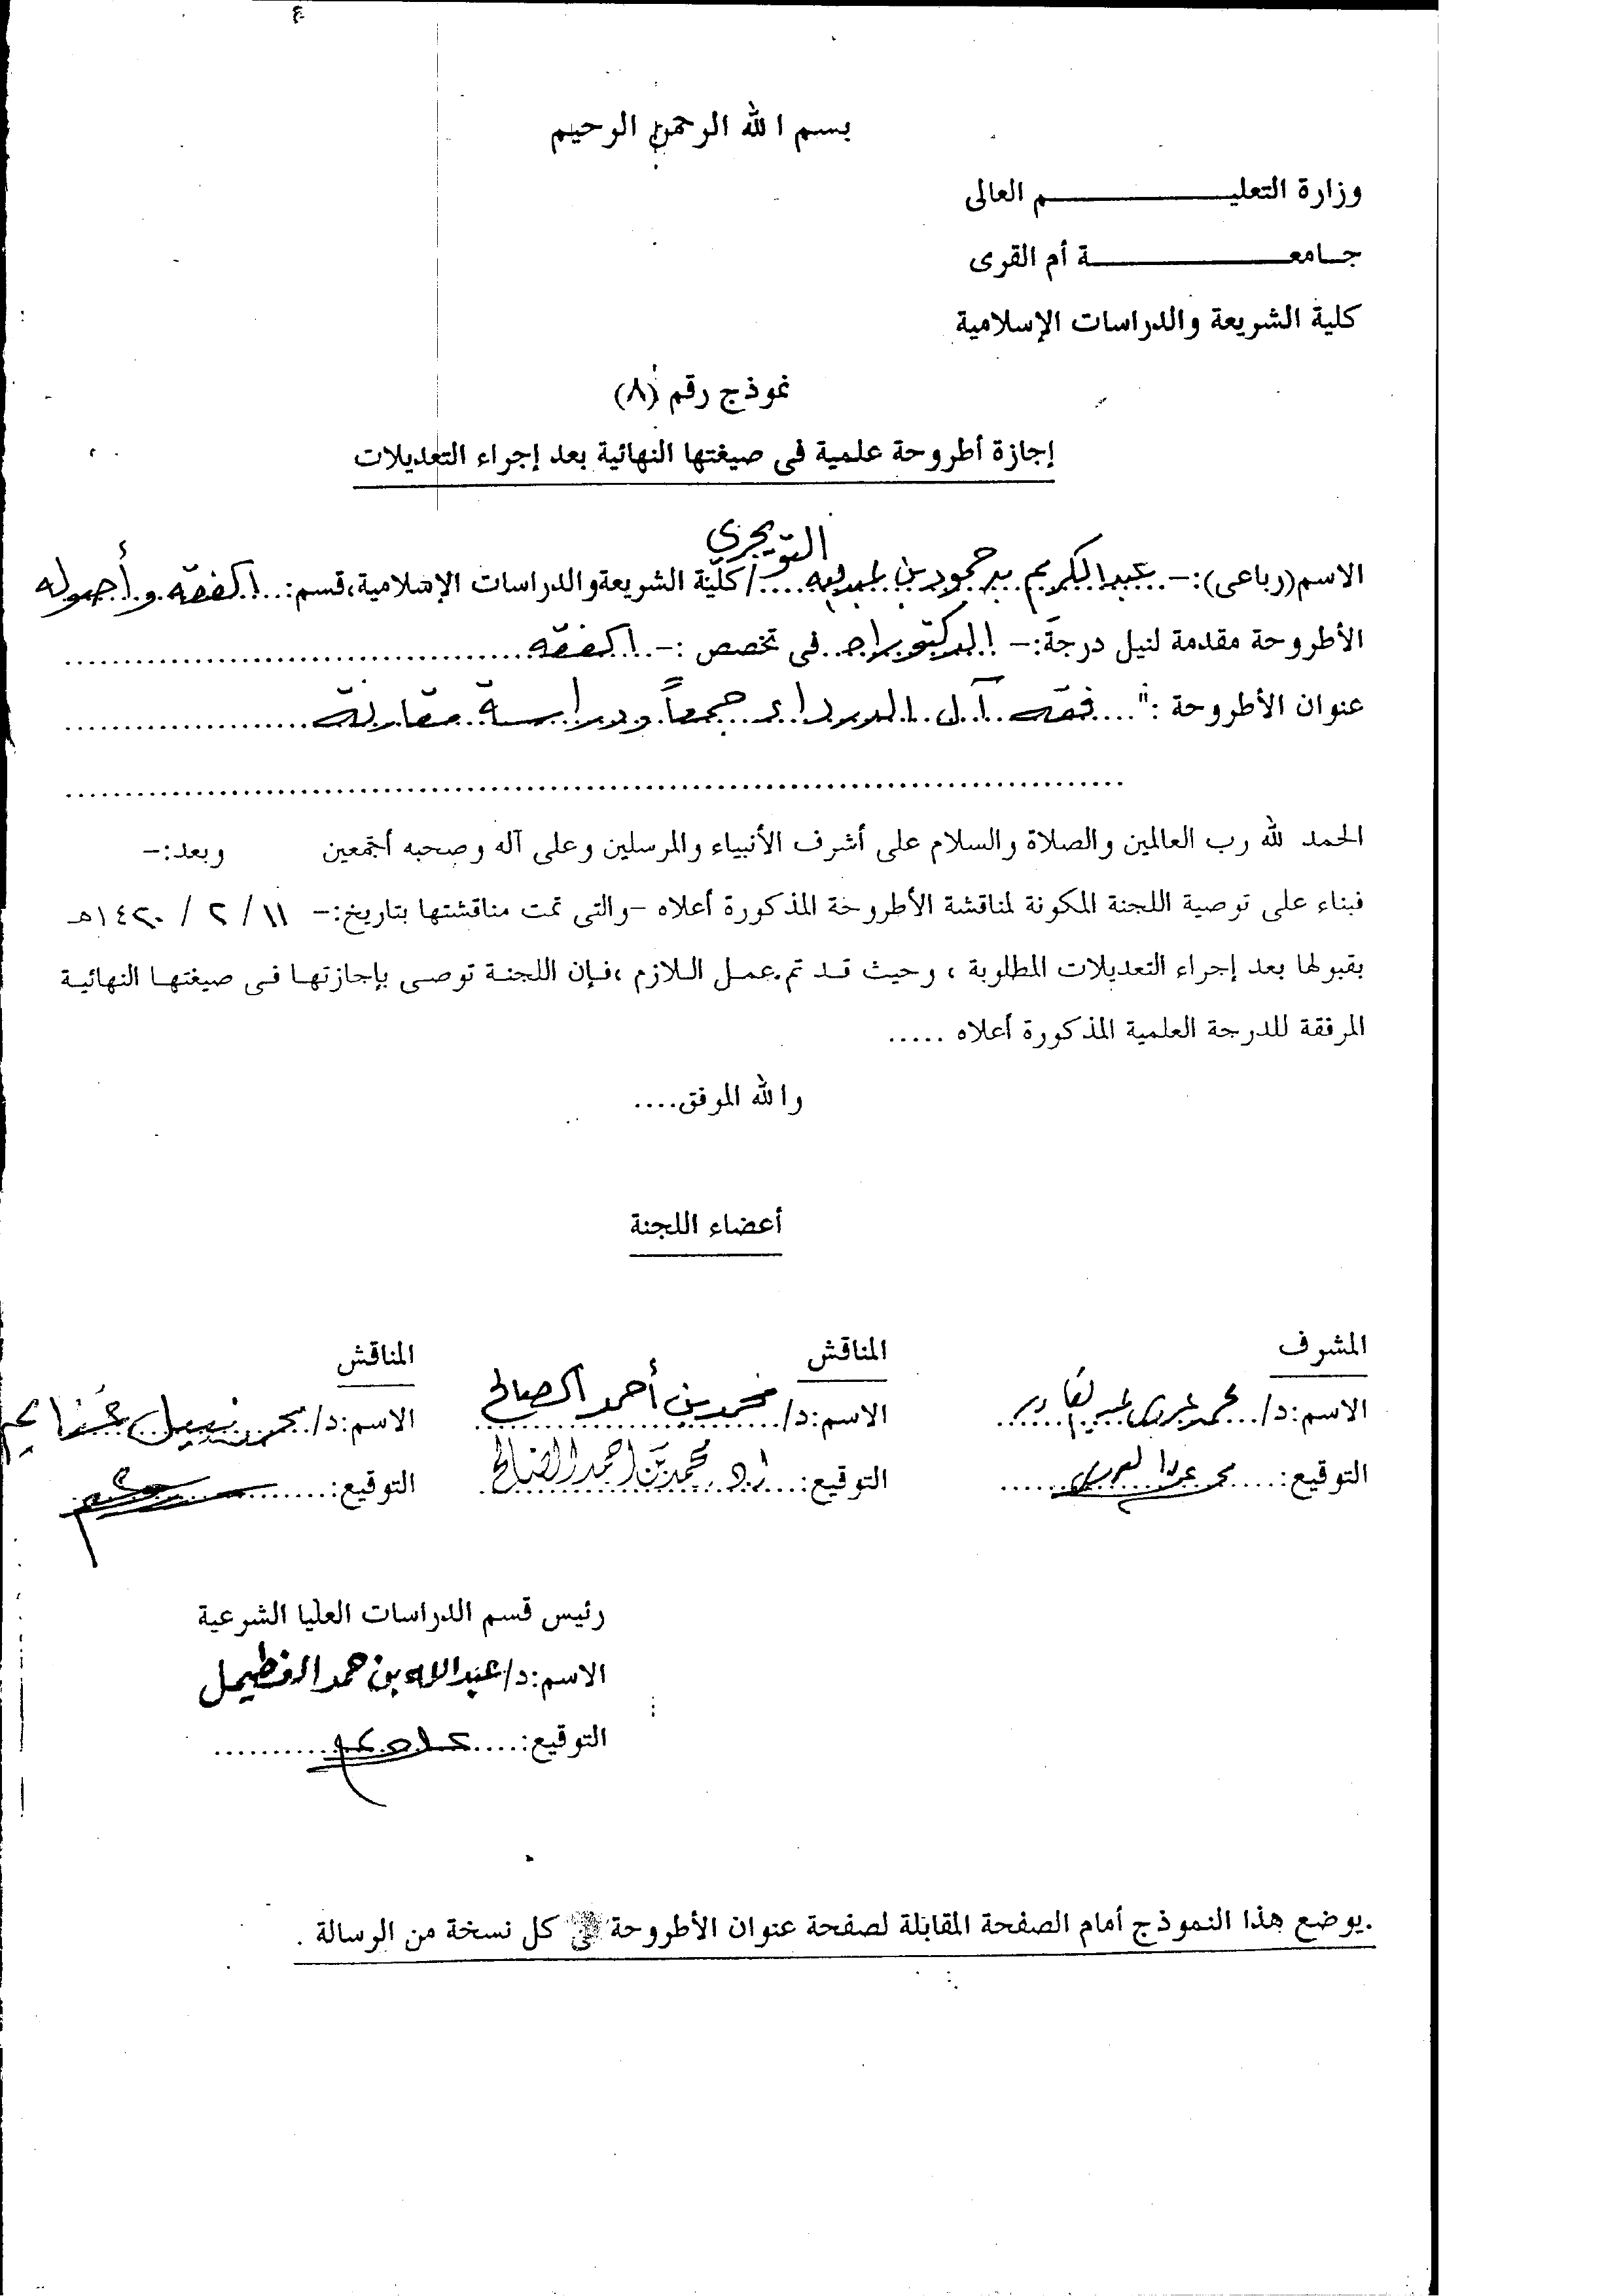 بسم الله الرحمن الرحيم
وزارة التعليـــــــــــــم العالى
جـامعـــــــــــــة أم القرى
كلية الشريعة والدراسات الإسلامية
نموذج رقم (٨)
إجازة أطروحة علمية فى صيغتها النهائية بعد إجراء التعديلات
التويجري
الاسم(رباعى):- عبدالكريم بن حمود بن عبدالله..../كلية الشريعة والدراسات الإسلامية،قسم:.. الفقه وأصوله
الأطروحة مقدمة لنيل درجة:- الدكتوراه.. فى تخصص :- .. الفقه..............
عنوان الأطروحة :"....فقه آل الدرداء جمعاً ودراسة مقارنة..............
..............
الحمد لله رب العالمين والصلاة والسلام على أشرف الأنبياء والمرسلين وعلى آله وصحبه أجمعين وبعد:-
فبناء على توصية اللجنة المكونة لمناقشة الأطروحة المذكورة أعلاه -والتى تمت مناقشتها بتاريخ:- ١١ / ٢ / ١٤٢٠هـ
بقبولها بعد إجراء التعديلات المطلوبة ، وحيث قـد تم عمـل الـلازم ،فـإن اللجنـة توصـى بإجازتهـا فـى صيغتهـا النهائيـة
المرفقة للدرجة العلمية المذكورة أعلاه .....
والله الموفق....
أعضاء اللجنة
المشرف المناقش المناقش
الاسم:د/...محمد العروسي عبدالقادر الاسم:د/ محمد بن أحمد الصالح الاسم:د/ محمد نبيل غنايم
التوقيع:.... التوقيع:....أ.د. محمد بن أحمد الصالح التوقيع:....
رئيس قسم الدراسات العليا الشرعية
الاسم:د/عبدالله بن حمد الغطيمل
التوقيع:....
.يوضع هذا النموذج أمام الصفحة المقابلة لصفحة عنوان الأطروحة فى كل نسخة من الرسالة .